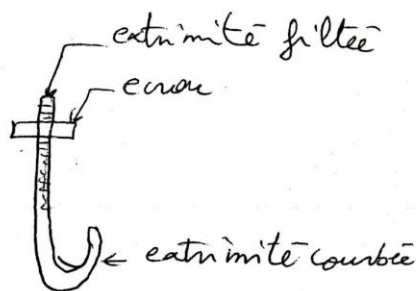 extrimité filtée
ecrou
extrimité courbée